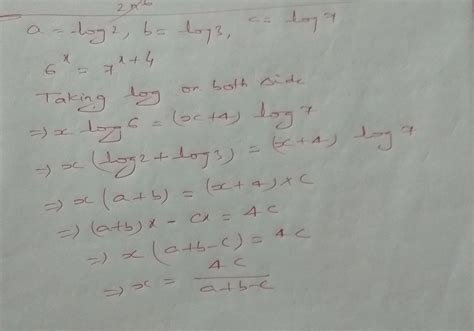 a = log2, b = log3, c = log7
6^x = 7^{x+4}
Taking log on both side
⇒ x log6 = (x+4) log7
⇒ x(log2 + log3) = (x+4) log7
⇒ x(a+b) = (x+4)×c
⇒ (a+b)x - cx = 4c
⇒ x(a+b-c) = 4c
⇒ x = 4c / a+b-c